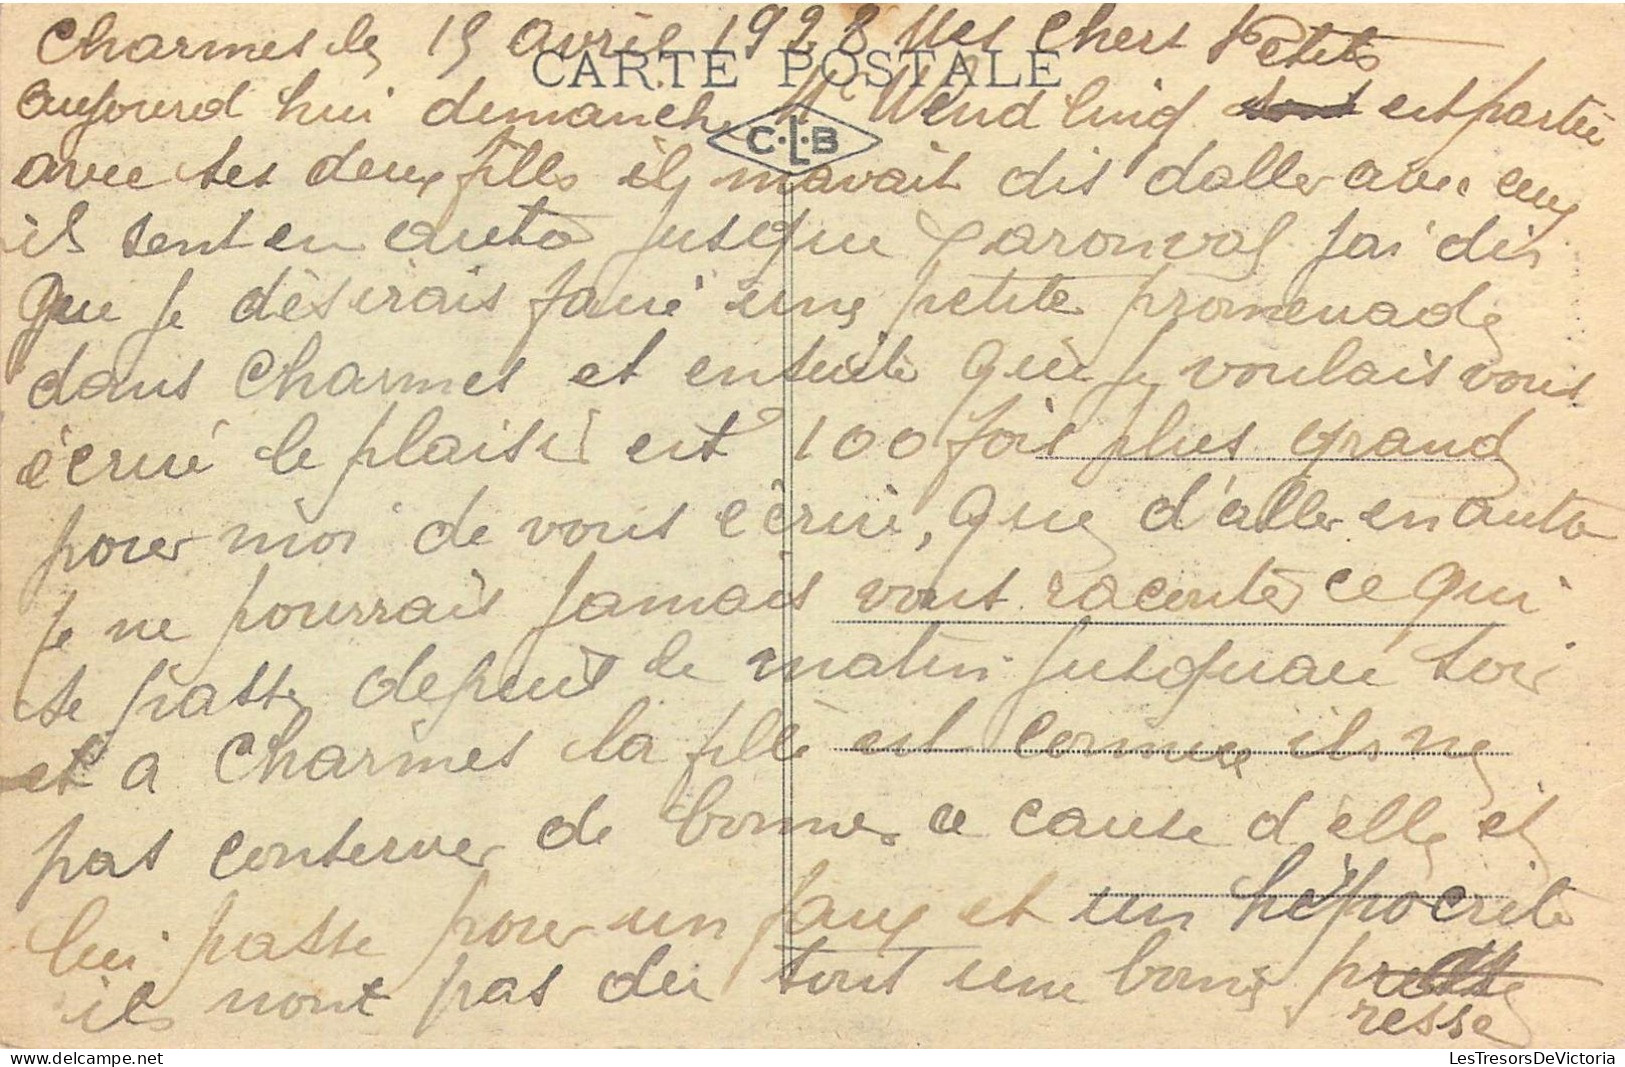 Charmes le 15 avril 1928 Mes Chers Petits
CARTE POSTALE
aujourd hui demanche M Wendling est partie
C.L.B
avec ses deux fills ils mavait dis daller avec eux
il sent en auto jusque Taronval jai dis
que je désirais faire une petite promenade
dans Charmes et ensuite que je voulais vous
écrire le plaisir est 100 fois plus grand
pour moi de vous écrire, que d'aller en auto
je ne pourrais jamais vous raconter ce qui
se passe depuis le matin jusquau soir
et a Charmes la fille est connue ils ne
pas conserver de bonnes a cause d'elle et
lui passe pour un faux et un hépocrite
ils nont pas du tout une bonne
resse
LesTresorsDeVictoria